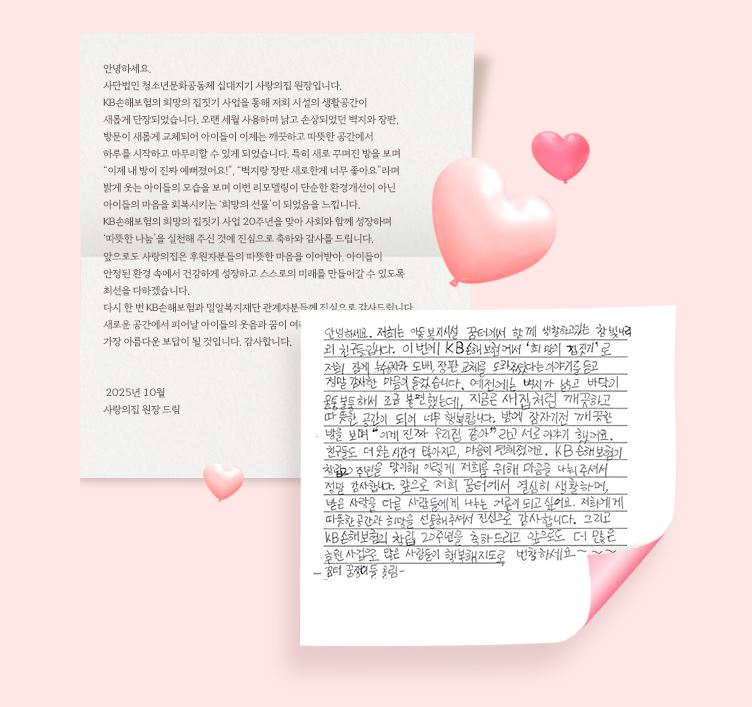 안녕하세요.
사단법인 청소년문화공동체 십대지기 사랑의집 원장입니다.
KB손해보험의 희망의 집짓기 사업을 통해 저희 시설의 생활공간이
새롭게 단장되었습니다. 오랜 세월 사용하며 낡고 손상되었던 벽지와 장판,
방문이 새롭게 교체되어 아이들이 이제는 깨끗하고 따뜻한 공간에서
하루를 시작하고 마무리할 수 있게 되었습니다. 특히 새로 꾸며진 방을 보며
“이제 내 방이 진짜 예뻐졌어요!”, “벽지랑 장판 새로한게 너무 좋아요”라며
밝게 웃는 아이들의 모습을 보며 이번 리모델링이 단순한 환경개선이 아닌
아이들의 마음을 회복시키는 ‘희망의 선물’이 되었음을 느낍니다.
KB손해보험의 희망의 집짓기 사업 20주년을 맞아 사회와 함께 성장하며
‘따뜻한 나눔’을 실천해 주신 것에 진심으로 축하와 감사를 드립니다.
앞으로도 사랑의집은 후원자분들의 따뜻한 마음을 이어받아, 아이들이
안정된 환경 속에서 건강하게 성장하고 스스로의 미래를 만들어갈 수 있도록
최선을 다하겠습니다.
다시 한 번 KB손해보험과 밀알복지재단 관계자분들께 진심으로 감사드립니다.
새로운 공간에서 피어날 아이들의 웃음과 꿈이
가장 아름다운 보답이 될 것입니다. 감사합니다.
2025년 10월
사랑의집 원장 드림
안녕하세요. 저희는 아동복지시설 꿈터에서 함께 생활하고있는 참빛나라
의 친구들입니다. 이번에 KB손해보험에서 '희망의 집짓기'로
저희 집에 눅수공사와 도배, 장판 교체를 도와주셨다는이야기를 듣고
정말 감사한 마음이 들었습니다. 예전에는 벽지가 낡고 바닥이
울퉁불퉁해서 조금 불편했는데, 지금은 새집처럼 깨끗하고
따뜻한 공간이 되어 너무 행복합니다. 밤에 잠자기전 깨끗한
방을 보며 "이게 진짜 우리집 같아" 라고 서로 이야기 했어요.
친구들도 더 웃는 시간이 많아지고, 마음이 편해졌어요. KB손해보험이
창립20주년을 맞이해 이렇게 저희를 위해 마음을 나눠주셔서
정말 감사합니다. 앞으로 저희 꿈터에서 열심히 생활하며,
받은 사랑을 다른 사람들에게 나누는 어른이 되고 싶어요. 저희에게
따뜻한공간과 희망을 선물해주셔서 진심으로 감사합니다. 그리고
KB손해보험의 창립 20주년을 축하드리고 앞으로도 더 많은
후원 사업으로 많은 사람들이 행복해지도록 번창하세요~~~
- 꿈터 꿈쟁이들 올림 -